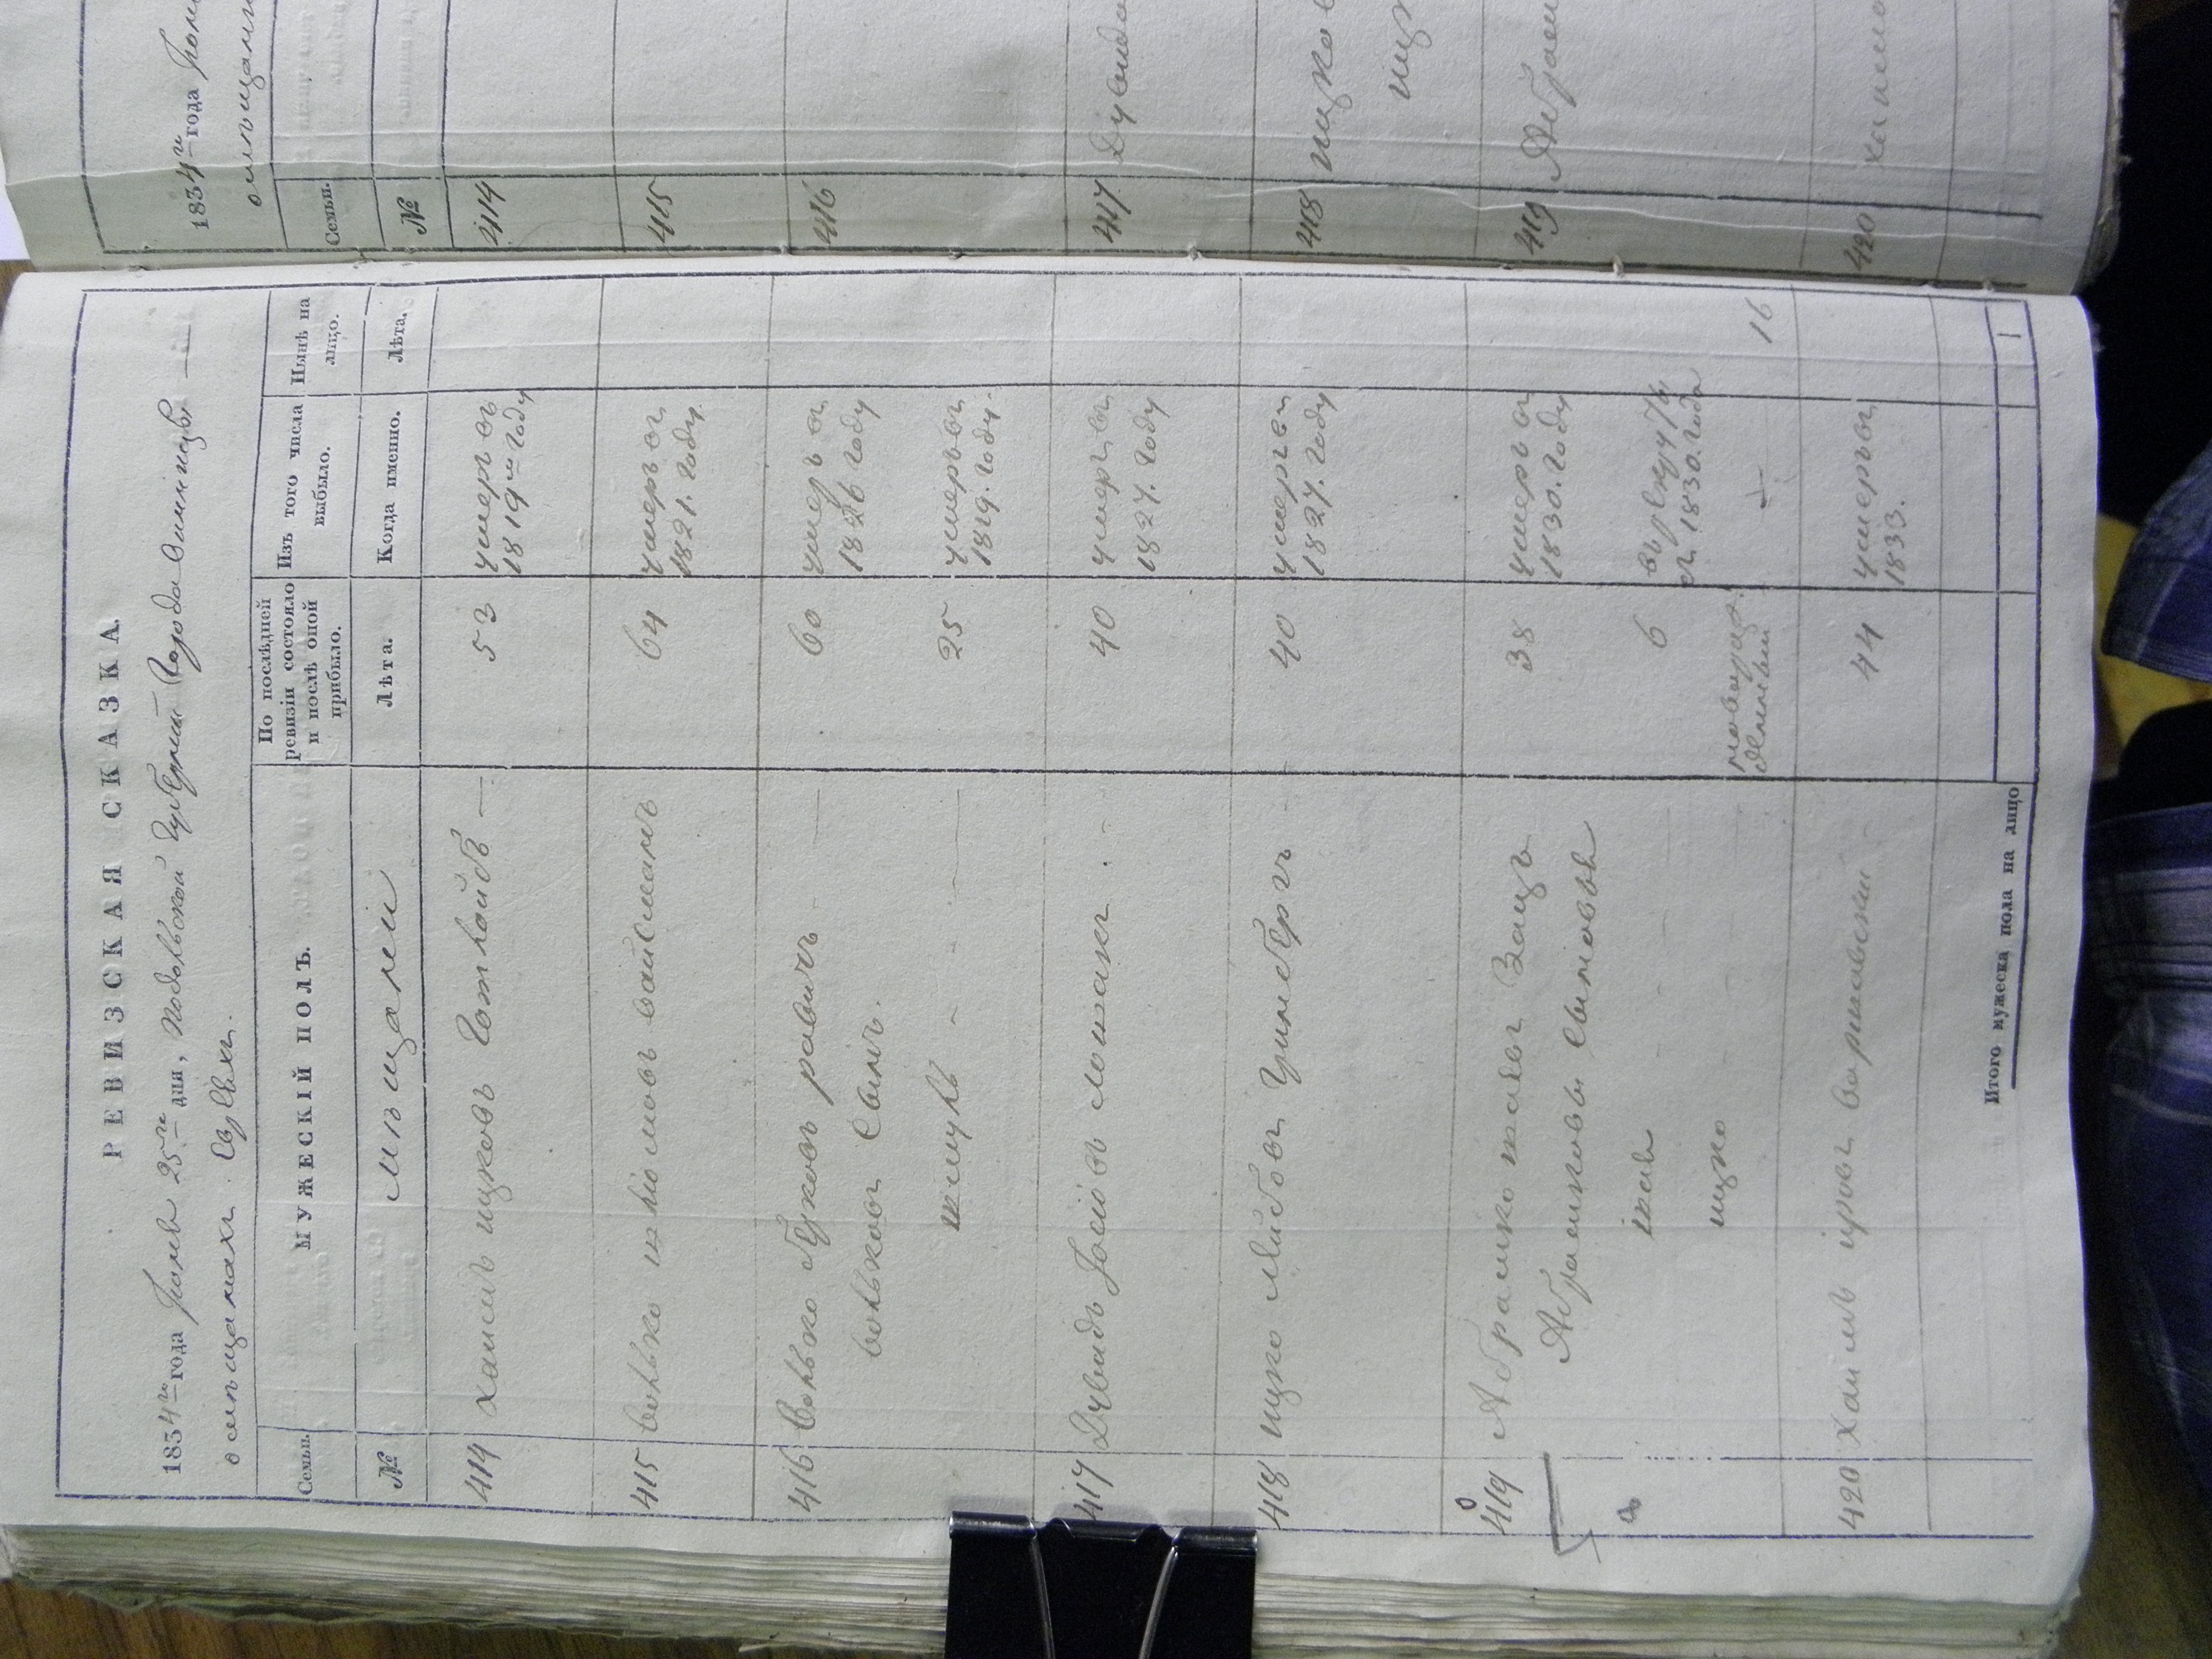 РЕВИЗСКАЯ СКАЗКА.
1834го года Июня 25го дня, Подольской Губернии Города Винницы
о мѣщанахъ Евреяхъ.
Семьи.
МУЖЕСКІЙ ПОЛЪ.
По послѣдней ревизіи состояло и послѣ оной прибыло.
Изъ того числа выбыло.
Нынѣ на лицо.
№
мѣщане
Лѣта.
Когда именно.
Лѣта.
414 Хаимъ ицковъ 53 умеръ въ
1819мъ году
415 Волько вайсманъ 64 умеръ въ
1821. году
416 Волько берковъ равичъ 60 умеръ въ
1826 году
вольковъ Сынъ. 25 умеръ въ
1819. году.
417 Дувидъ Іосіовъ 40 умеръ въ
1827. году
418 ицко Лейбовъ Гринбергъ 40 умеръ въ
1827. году
419 Абрамко Зацъ 38 умеръ въ
1830. году
Абрамковы Сыновья
6 въ рекруты
въ 1830. году
ицко 16
420 Хаимъ 44 умеръ въ
1833.
Итого мужеска пола на лицо 1
1834го года Іюня
о мѣщанах
Семьи.
№
414
415
416
417 Дувида
418 ицко
ицк
419 Абрам
420 хаима